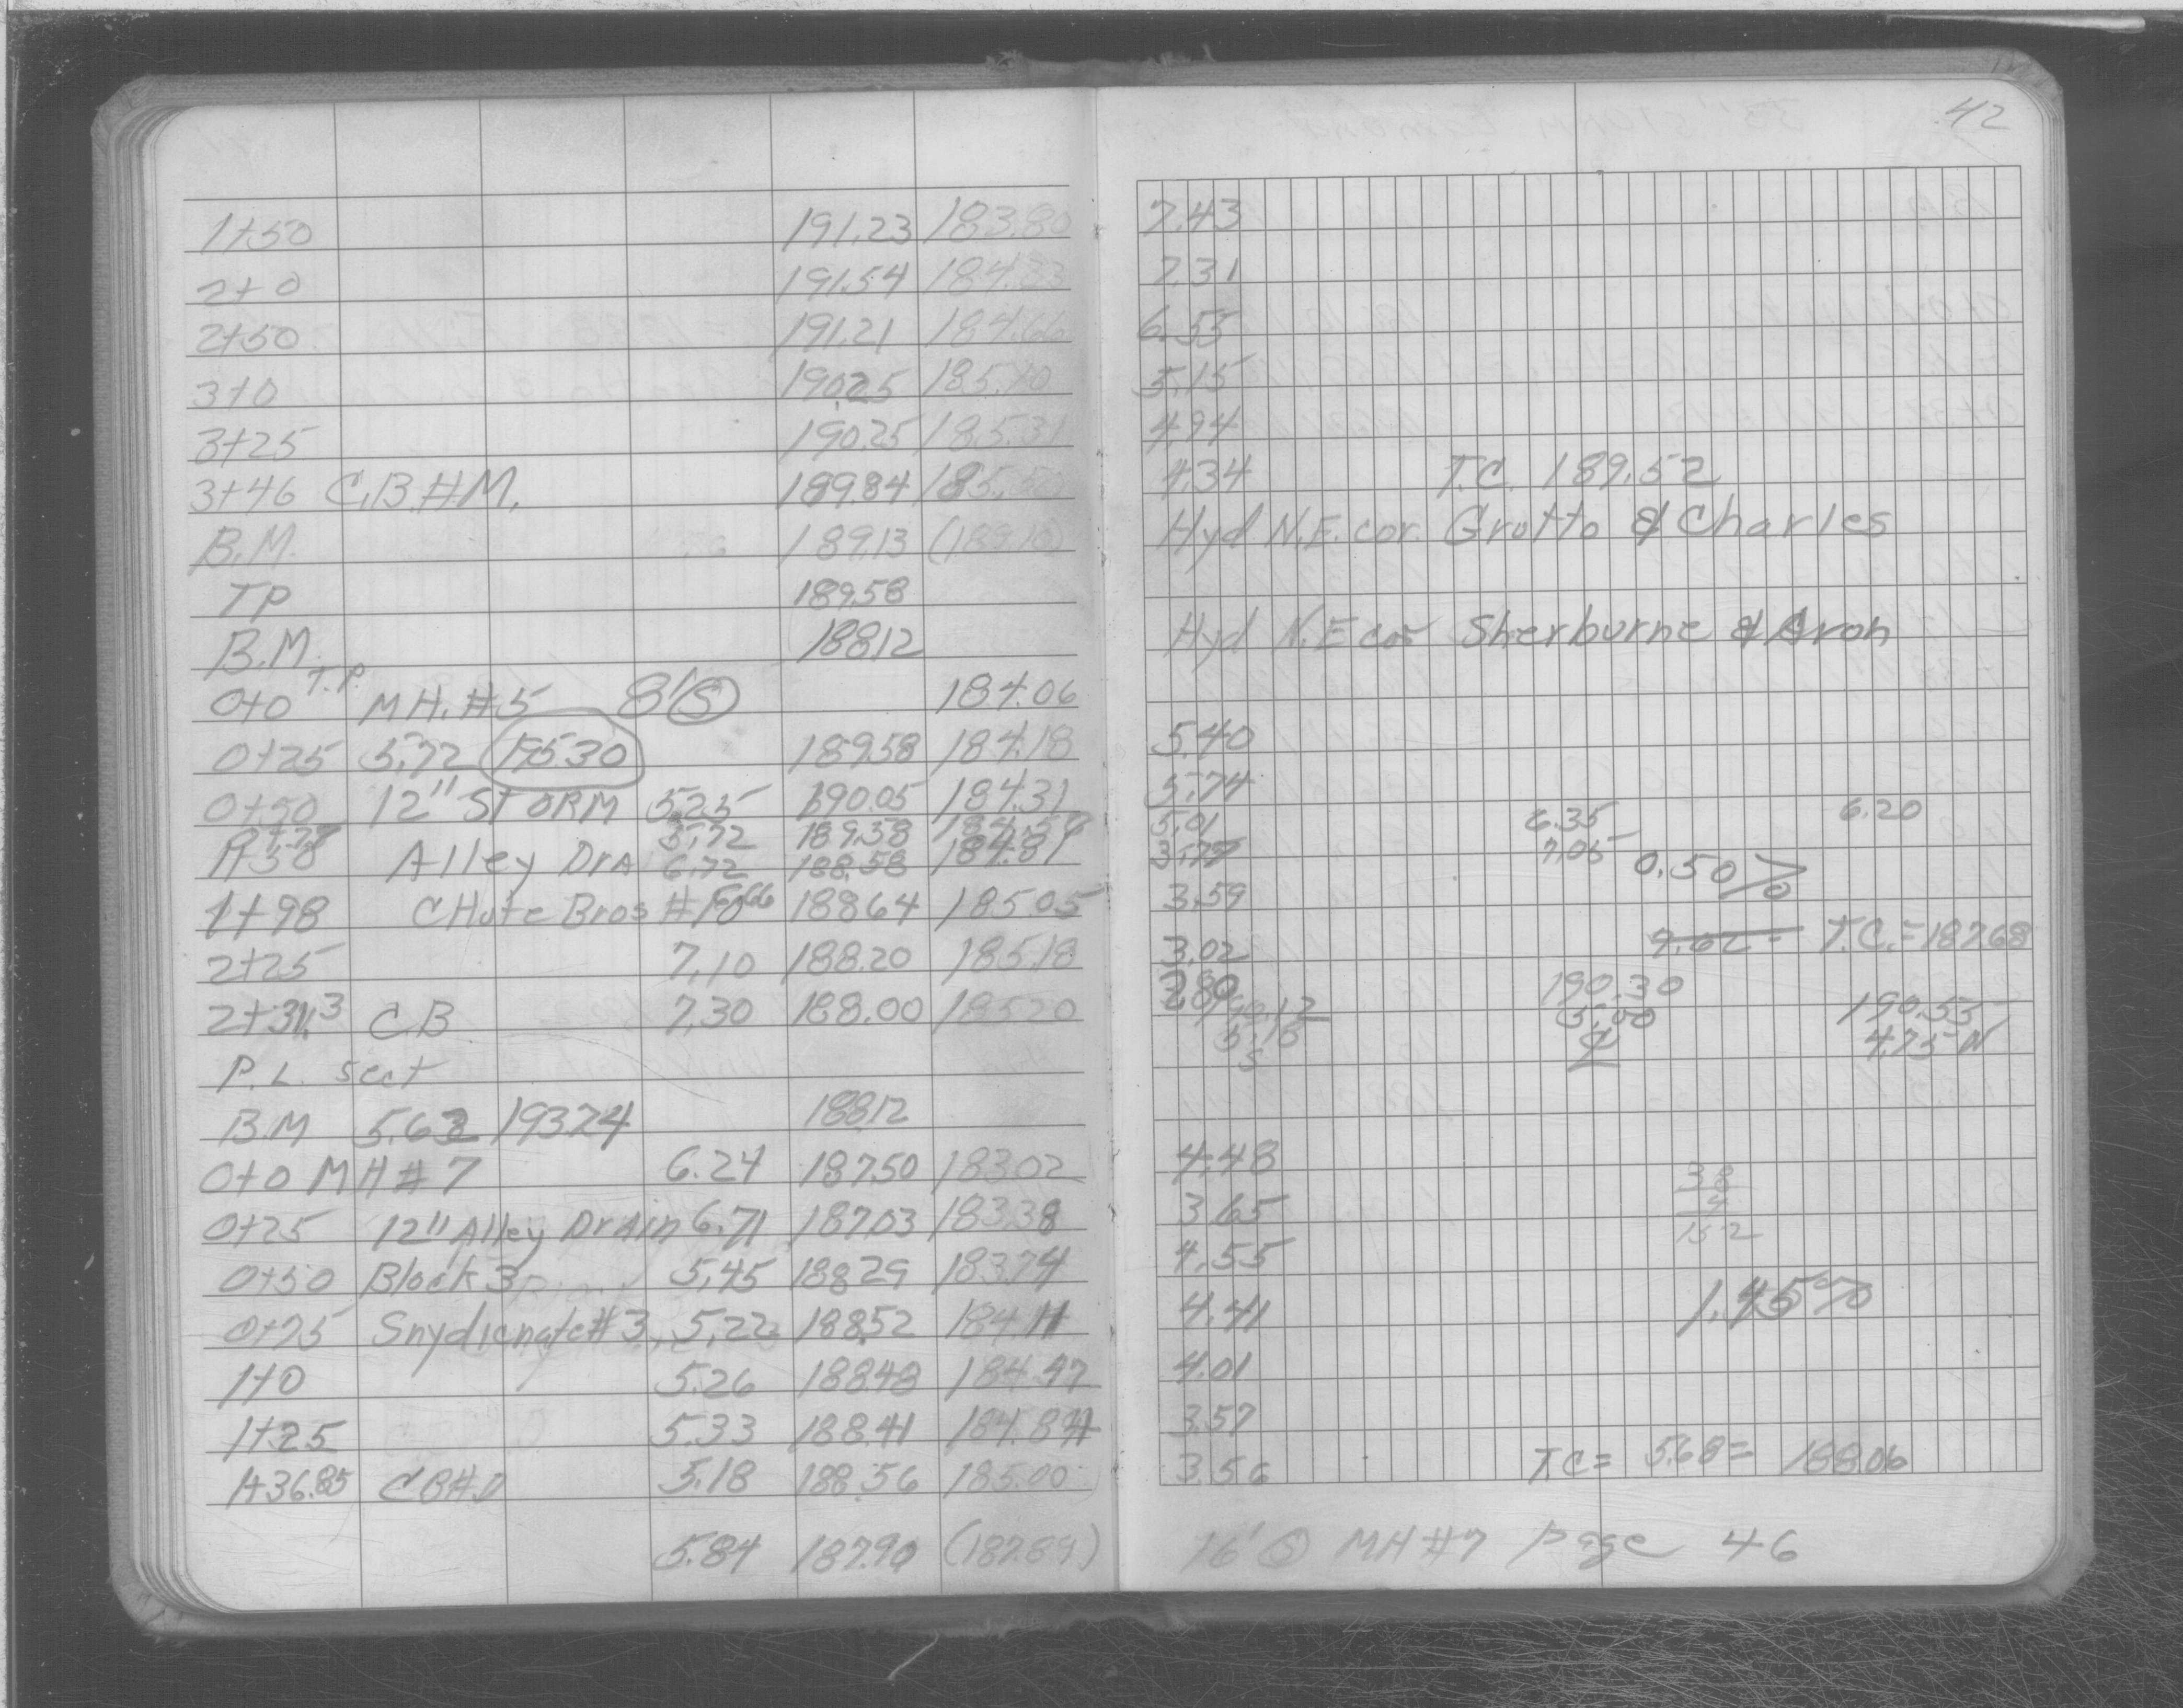 42
1+50 191.23 183.80 7.43
2+0 191.54 184.23 7.31
2+50 191.21 184.66 6.55
3+0 190.25 185.10 5.15
3+25 190.25 185.31 4.94
3+46 C.B.#M. 189.84 185.50 4.34 T.C. 189.52
B.M. 189.13 (189.10) Hyd N.E. cor. Grotto & Charles
TP 189.58
B.M. 188.12 Hyd N.E cor Sherburne & Avon
0+0 T.P. MH. #5 8' S 184.06
0+25 5.72 195.30 189.58 184.18 5.40
0+50 12" STORM 5.25 190.05 184.31 5.74
5.72 189.58 5.01 6.35 6.20
1+50 Alley Dra 6.72 188.58 184.81 3.77 7.05 0.50%
1+98 CHute Bros #10 6.66 188.64 185.05 3.59
2+25 7.10 188.20 185.18 3.02 7.62 = T.C. = 187.68
2+31.3 CB 7.30 188.00 185.20 2.80 190.30
190.12 5.00 190.55
5.18 4.75 N
S
P.L. sect
B.M 5.62 193.74 188.12
0+0 MH #7 6.24 187.50 183.02 4.48
0+25 12" Alley Drain 6.71 187.03 183.38 3.65
38
4
152
0+50 Block 3 5.45 188.29 183.74 4.55
0+75 Snydicnate #3 5.22 188.52 184.11 4.41 1.45%
1+0 5.26 188.48 184.47 4.01
1+25 5.33 188.41 184.84 3.57
1+36.85 CB#D 5.18 188.56 185.00 3.56 TC = 5.68 = 188.06
5.84 187.90 (187.89) 16' S MH #7 Page 46